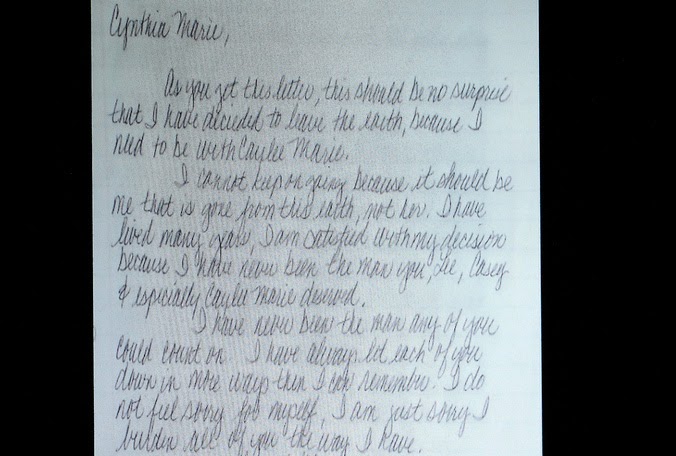 Cynthia Marie,
As you get this letter, this should be no surprise
that I have decided to leave the earth, because I
need to be with Caylee Marie.
I cannot keep on going because it should be
me that is gone from this earth, not her. I have
lived many years, I am satisfied with my decision
because I have never been the man you, Lee, Casey
& especially Caylee Marie deserved.
I have never been the man any of you
could count on. I have always let each of you
down in more ways then I can remember. I do
not feel sorry for myself, I am just sorry I
burden all of you the way I have.